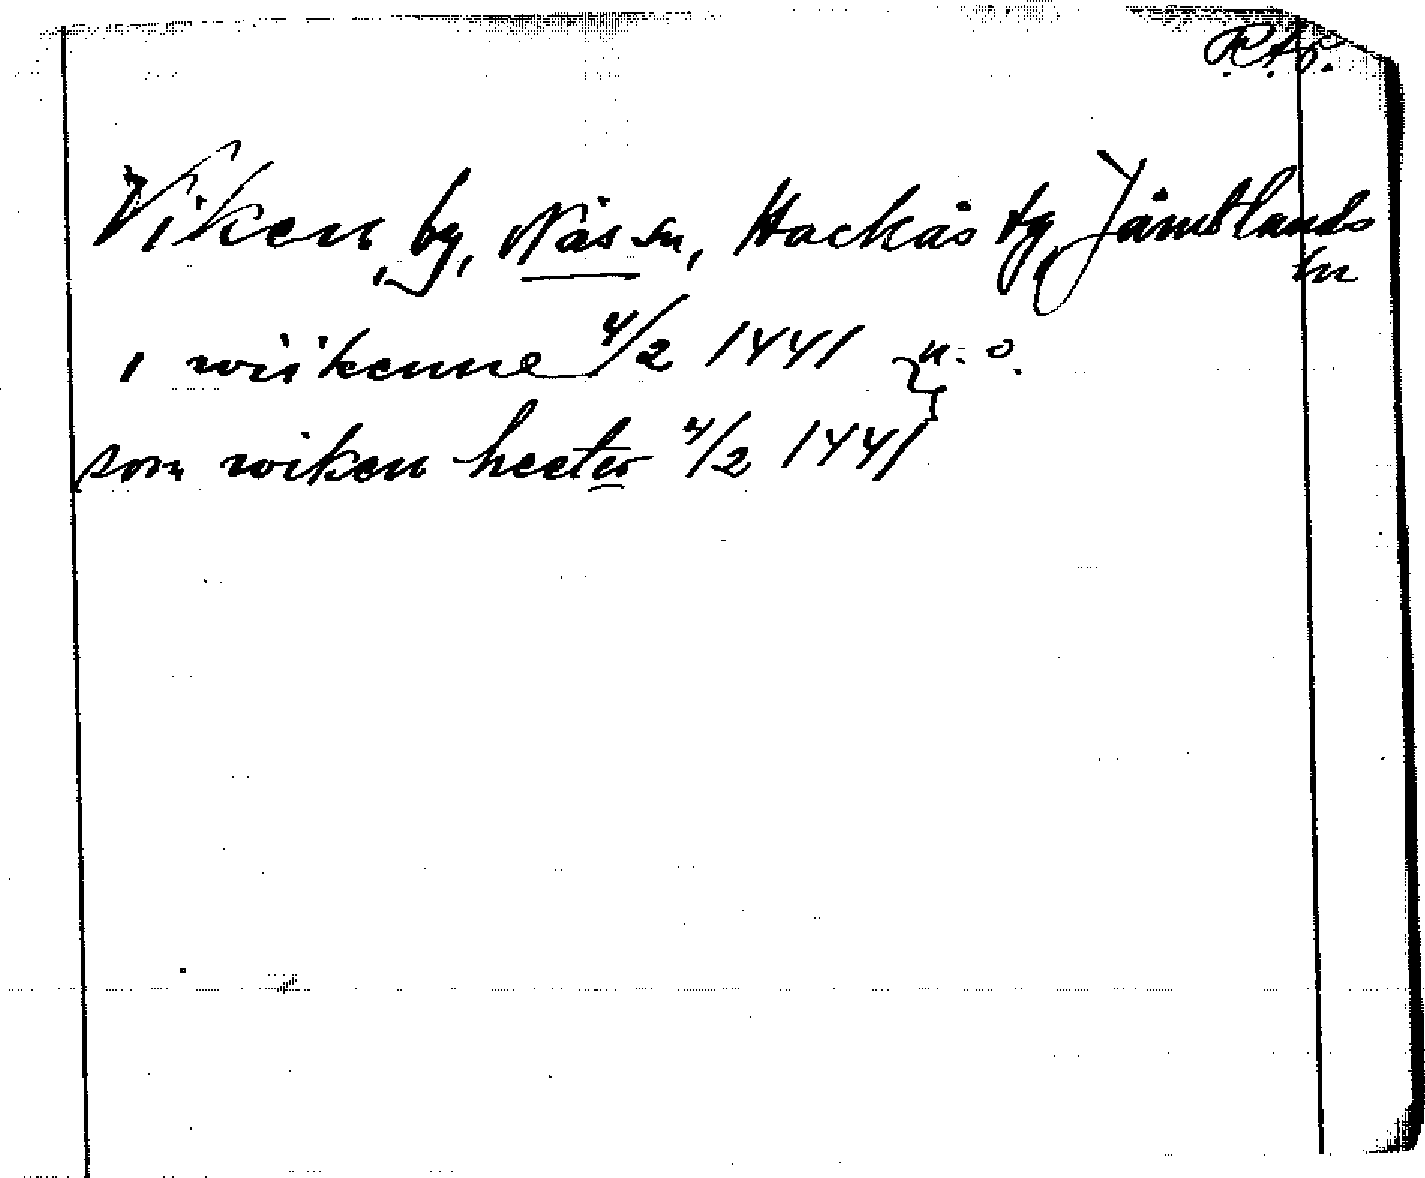 R.A.P.
Viken, by, Näs sn, Hackås tg Jämtlands
ln
i wiikenne 4/2 1441 n. o.
som wiken heeter 4/2 1441